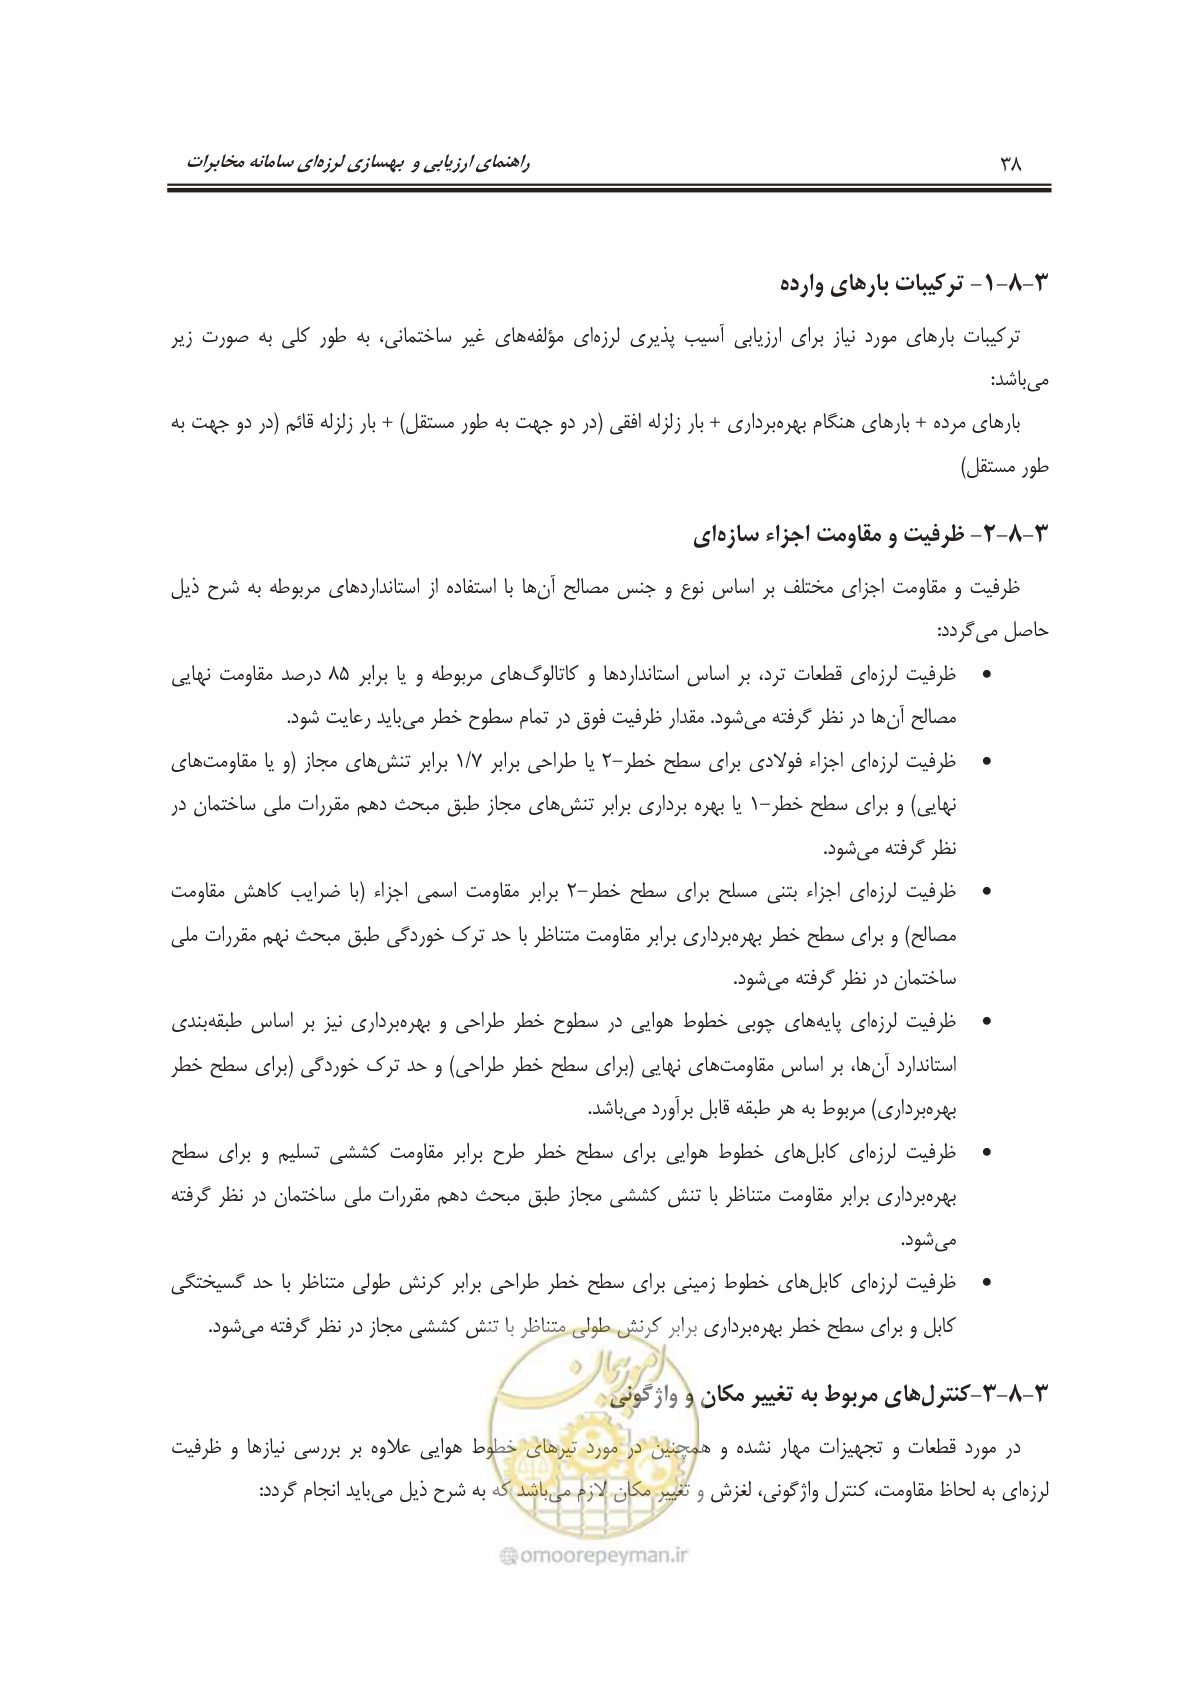 ۳۸
راهنمای ارزیابی و بهسازی لرزه‌ای سامانه مخابرات
۳-۸-۱- ترکیبات بارهای وارده
ترکیبات بارهای مورد نیاز برای ارزیابی آسیب پذیری لرزه‌ای مؤلفه‌های غیر ساختمانی، به طور کلی به صورت زیر
می‌باشد:
بارهای مرده + بارهای هنگام بهره‌برداری + بار زلزله افقی (در دو جهت به طور مستقل) + بار زلزله قائم (در دو جهت به
طور مستقل)
۳-۸-۲- ظرفیت و مقاومت اجزاء سازه‌ای
ظرفیت و مقاومت اجزای مختلف بر اساس نوع و جنس مصالح آن‌ها با استفاده از استانداردهای مربوطه به شرح ذیل
حاصل می‌گردد:
• ظرفیت لرزه‌ای قطعات ترد، بر اساس استانداردها و کاتالوگ‌های مربوطه و یا برابر ۸۵ درصد مقاومت نهایی
مصالح آن‌ها در نظر گرفته می‌شود. مقدار ظرفیت فوق در تمام سطوح خطر می‌باید رعایت شود.
• ظرفیت لرزه‌ای اجزاء فولادی برای سطح خطر-۲ یا طراحی برابر ۱/۷ برابر تنش‌های مجاز (و یا مقاومت‌های
نهایی) و برای سطح خطر-۱ یا بهره برداری برابر تنش‌های مجاز طبق مبحث دهم مقررات ملی ساختمان در
نظر گرفته می‌شود.
• ظرفیت لرزه‌ای اجزاء بتنی مسلح برای سطح خطر-۲ برابر مقاومت اسمی اجزاء (با ضرایب کاهش مقاومت
مصالح) و برای سطح خطر بهره‌برداری برابر مقاومت متناظر با حد ترک خوردگی طبق مبحث نهم مقررات ملی
ساختمان در نظر گرفته می‌شود.
• ظرفیت لرزه‌ای پایه‌های چوبی خطوط هوایی در سطوح خطر طراحی و بهره‌برداری نیز بر اساس طبقه‌بندی
استاندارد آن‌ها، بر اساس مقاومت‌های نهایی (برای سطح خطر طراحی) و حد ترک خوردگی (برای سطح خطر
بهره‌برداری) مربوط به هر طبقه قابل برآورد می‌باشد.
• ظرفیت لرزه‌ای کابل‌های خطوط هوایی برای سطح خطر طرح برابر مقاومت کششی تسلیم و برای سطح
بهره‌برداری برابر مقاومت متناظر با تنش کششی مجاز طبق مبحث دهم مقررات ملی ساختمان در نظر گرفته
می‌شود.
• ظرفیت لرزه‌ای کابل‌های خطوط زمینی برای سطح خطر طراحی برابر کرنش طولی متناظر با حد گسیختگی
کابل و برای سطح خطر بهره‌برداری برابر کرنش طولی متناظر با تنش کششی مجاز در نظر گرفته می‌شود.
۳-۸-۳-کنترل‌های مربوط به تغییر مکان و واژگونی
در مورد قطعات و تجهیزات مهار نشده و همچنین در مورد تیرهای خطوط هوایی علاوه بر بررسی نیازها و ظرفیت
لرزه‌ای به لحاظ مقاومت، کنترل واژگونی، لغزش و تغییر مکان لازم می‌باشد که به شرح ذیل می‌باید انجام گردد:
امور پیمان
@omoorepeyman.ir